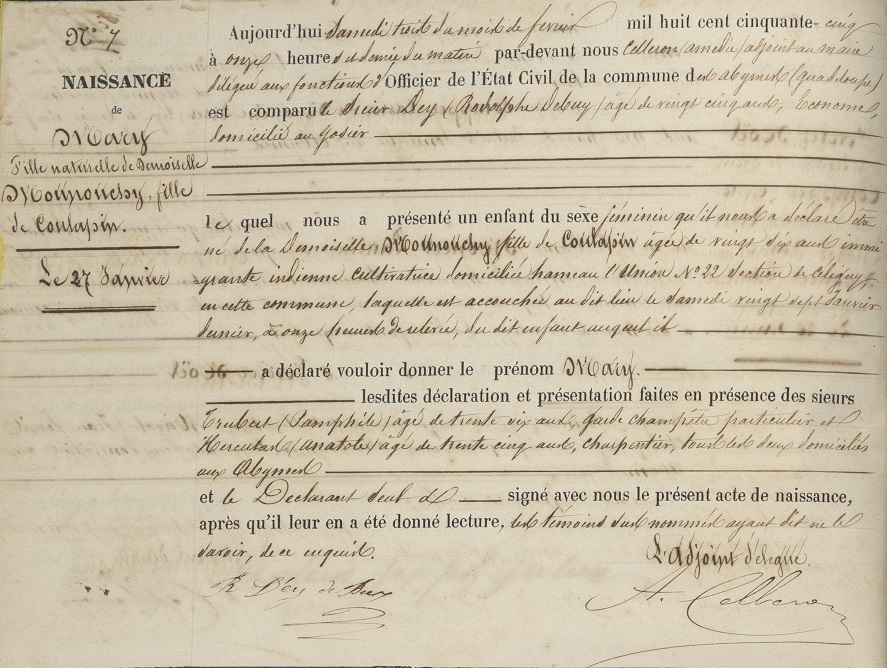 N° 7
NAISSANCE
de
Mary
Fille naturelle de Demoiselle
Mounouchy, fille
de Coulapin.
Le 27 Janvier
Aujourd'hui Samedi trois du mois de fevrier mil huit cent cinquante-cinq
à onze heures et demie du matin par-devant nous Celleron (amedée) adjoint au maire
délégué aux fonctions d'Officier de l'État Civil de la commune des abymes (guadeloupe)
est comparu le sieur Dey (Rodolphe Debuy) âgé de vingt cinq ans, Econome,
domicilié au gosier
le quel nous a présenté un enfant du sèxe féminin qu'il nous a déclaré être
né de la Demoiselle Mounouchy fille de Coulapin agée de vingt six ans immi
-grante indienne cultivatrice domiciliée hameau l'Union N° 22 Section de
en cette commune, laquelle est accouchée au dit lieu le Samedi vingt sept Janvier
dernier, à onze heures de relevée, du dit enfant auquel il
a déclaré vouloir donner le prénom Mary.
lesdites déclaration et présentation faites en présence des sieurs
Trubert (Pamphile) âgé de trente six ans, garde champêtre particulier, et
(anatole) âgé de trente cinq ans, charpentier, tous les deux domiciliés
aux Abymes
et le Déclarant seul a signé avec nous le présent acte de naissance,
après qu'il leur en a été donné lecture, les témoins sus nommés ayant dit ne le
savoir, de ce enquis.
L'adjoint délégué.
R Dey de
A. Celleron